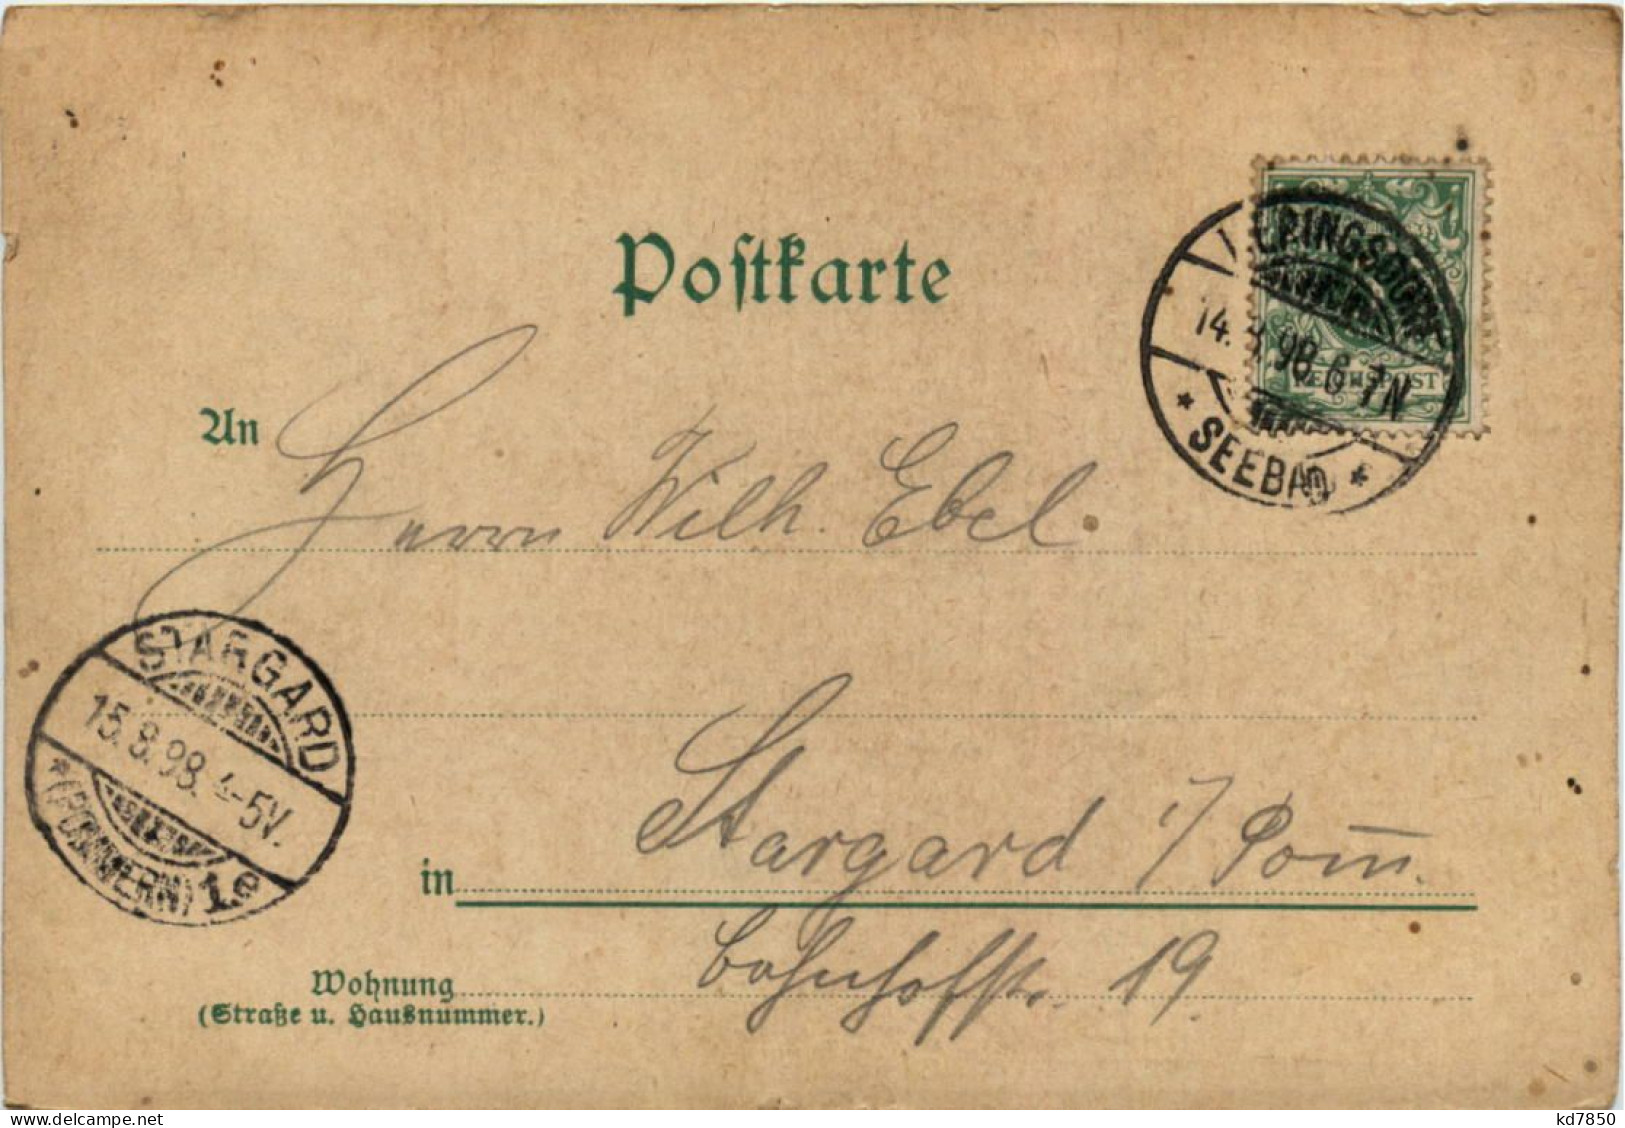 Postkarte
HERINGSDORF
14.8.98.6-7N
* SEEBAD *
REICHSPOST
An Herrn Wilh. Ebel.
STARGARD
15.8.98. 4-5V.
*(POMMERN) 1.e
in Stargard i/Pom.
Wohnung Bahnhofstr. 19.
(Straße u. Hausnummer.)
www.delcampe.net
kd7850